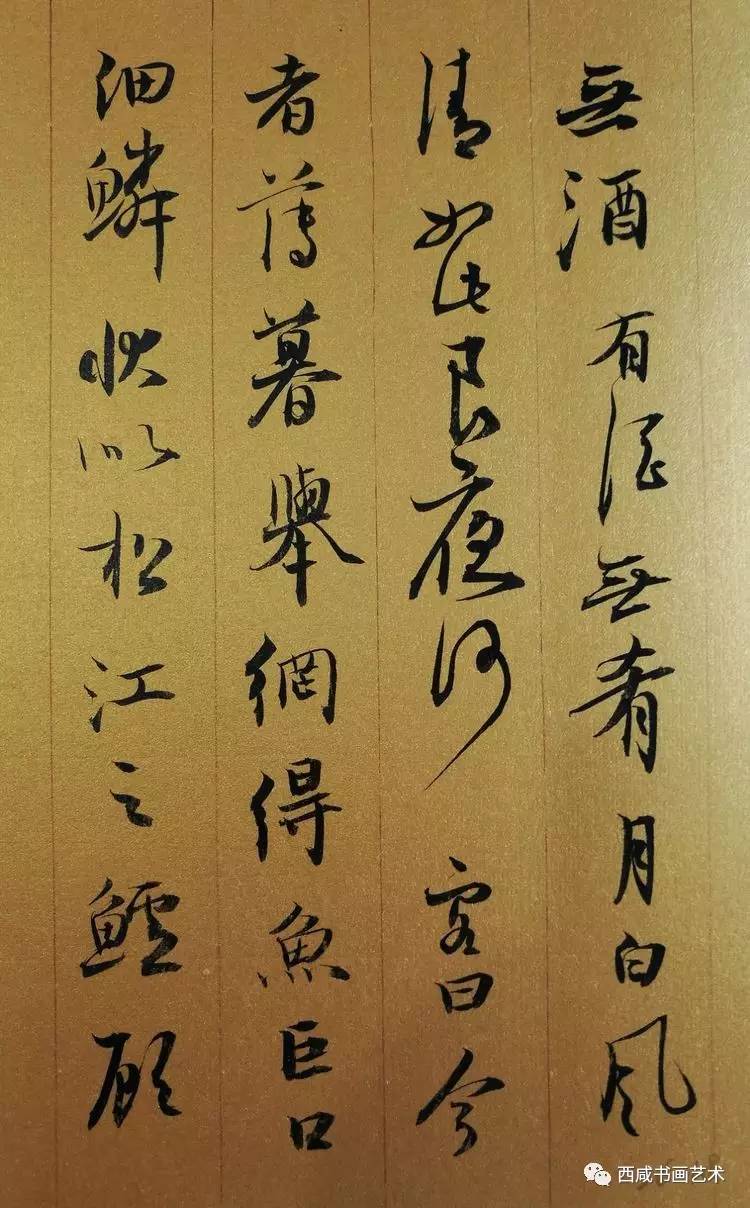 無酒有酒無肴月白風
清如此良夜何客曰今
者薄暮舉網得魚巨口
细鳞状似松江之鱸顾
西咸书画艺术